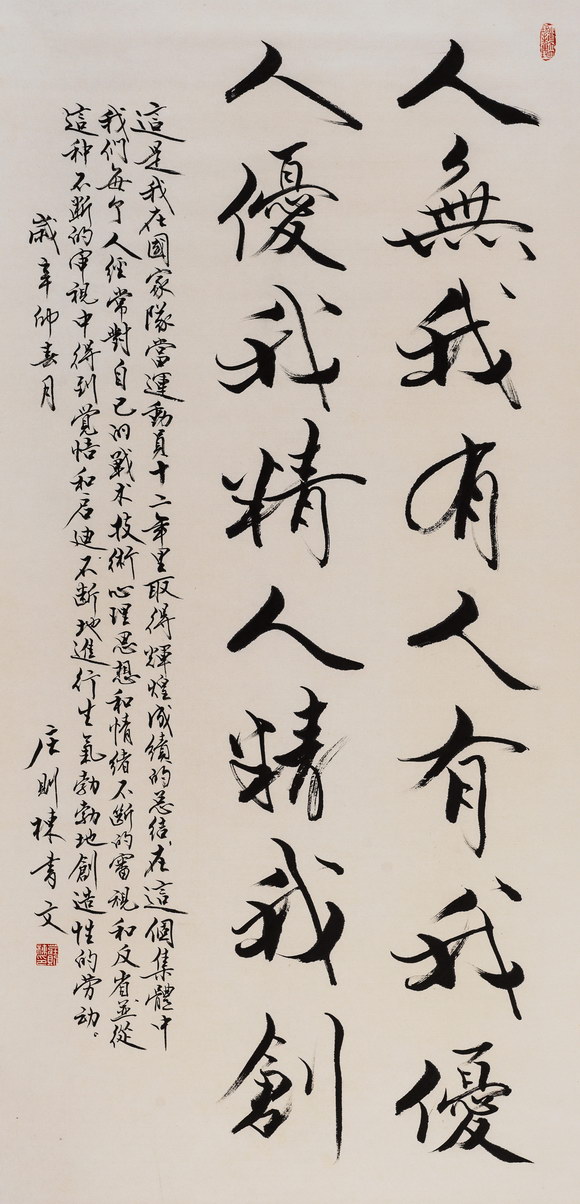 人無我有人有我優
人優我精人精我創
這是我在國家隊當運動員十二年里取得輝煌成績的总结.在這個集體中
我们每个人经常對自己的戰术技術心理思想和情绪不断的審視和反省並從
這种不断的审視中得到覺悟和启迪不断地進行生氣勃勃地創造性的劳动。
歲辛卯春月
庄則棟書文